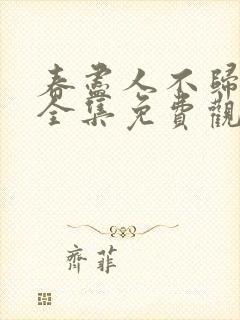 春盡人不歸
全集免費觀
齊菲